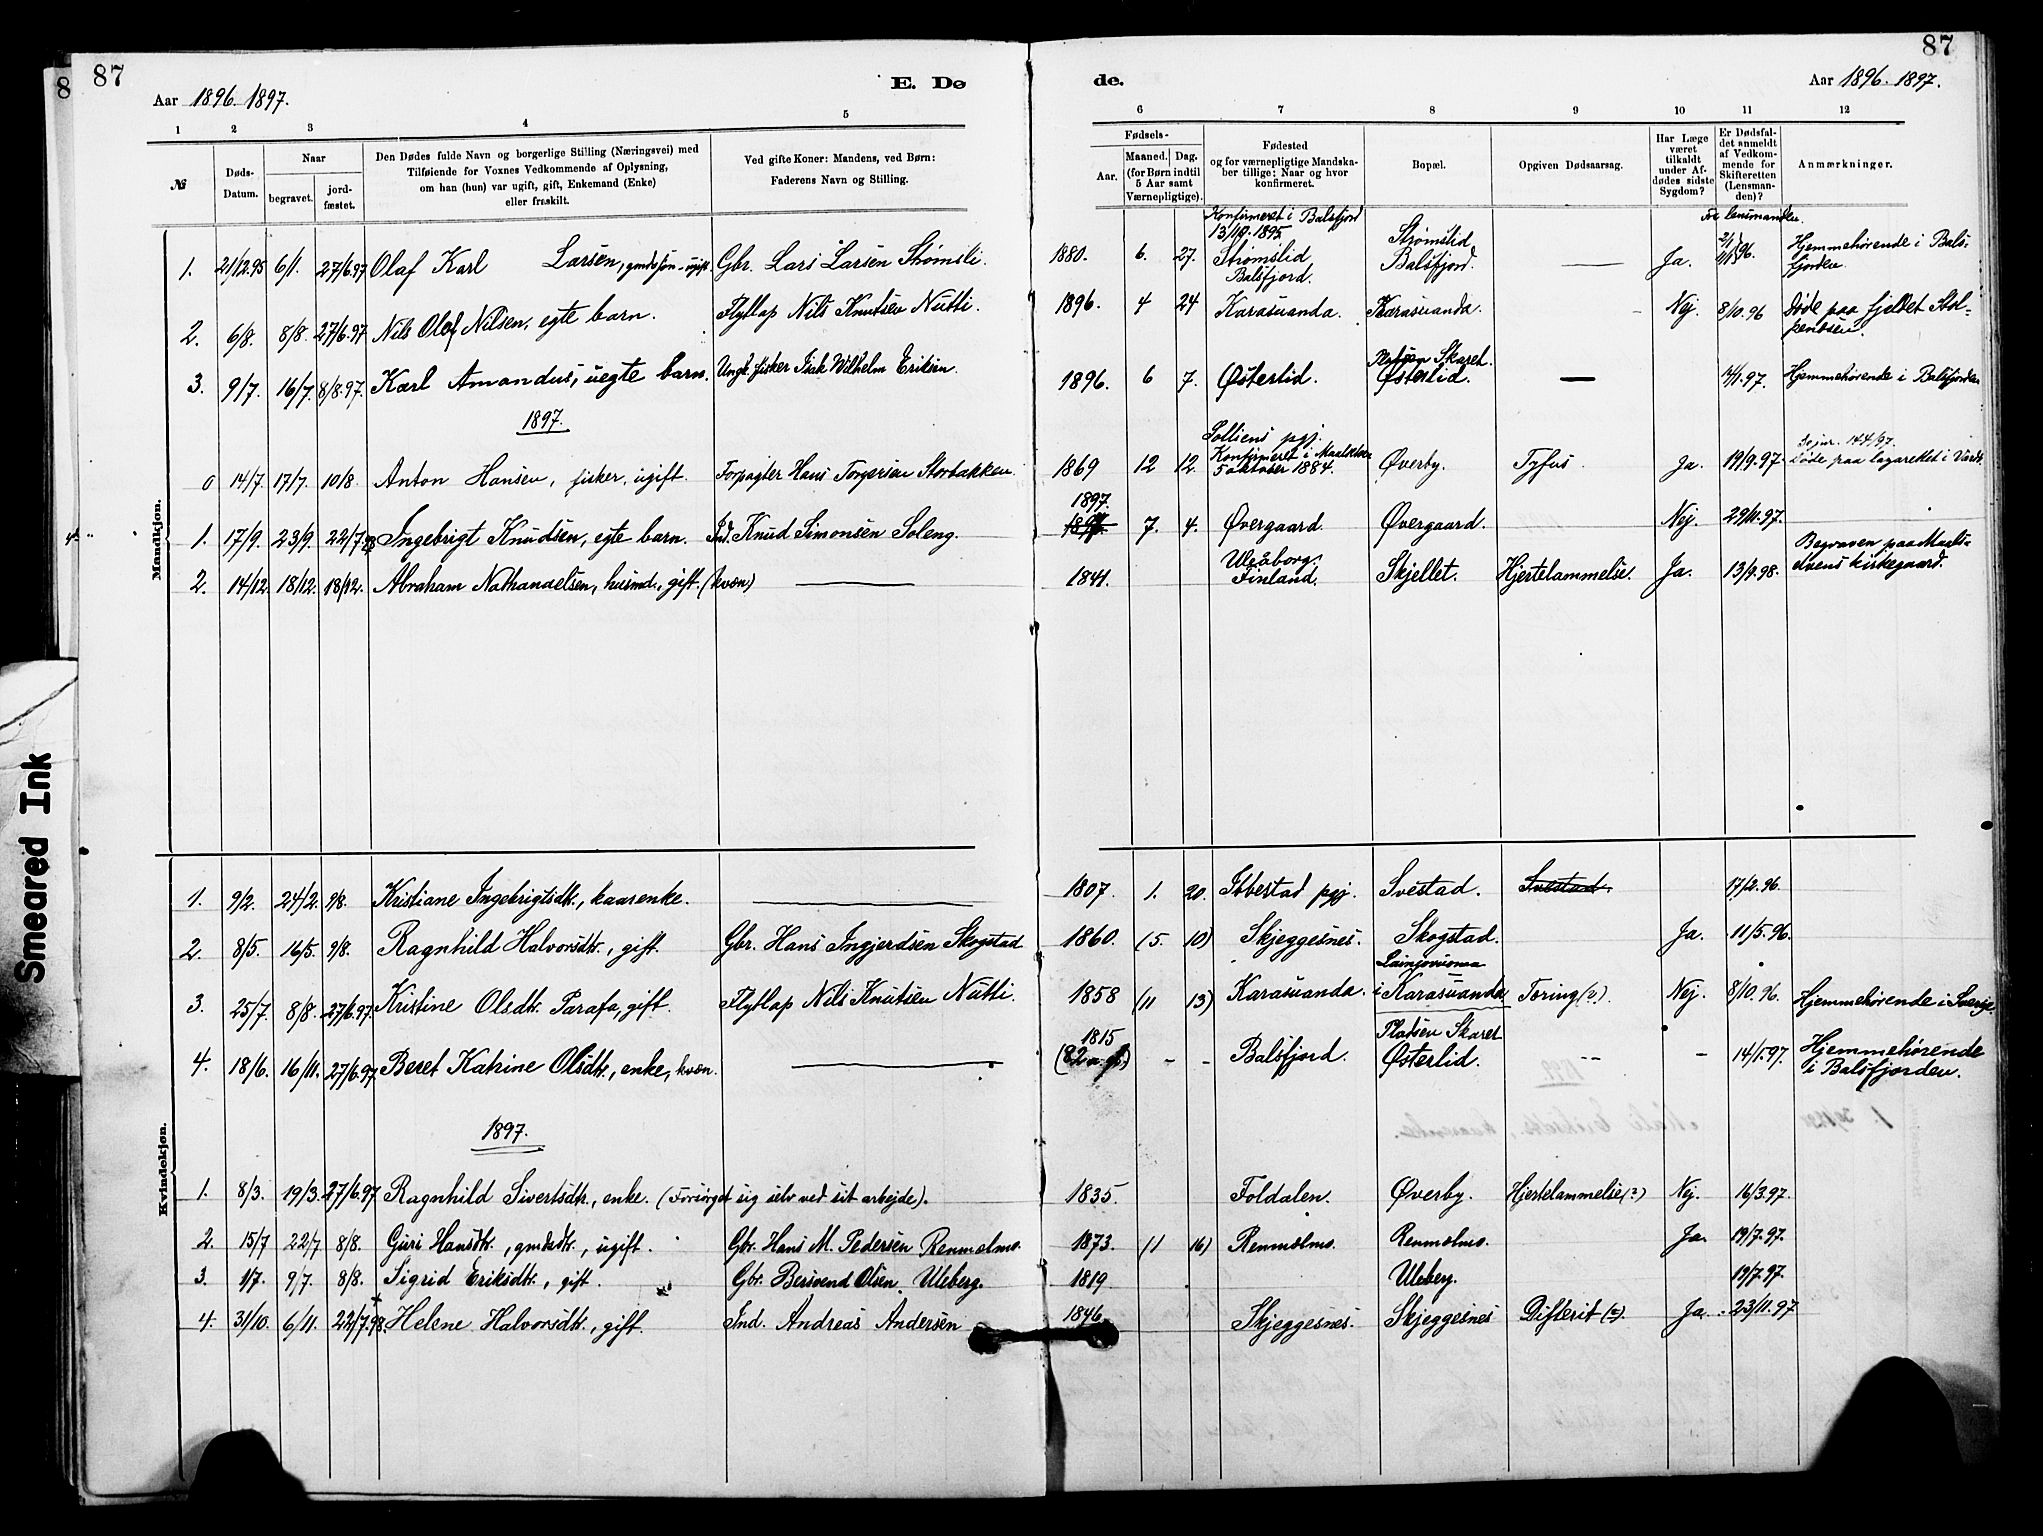 87
8
Aar 1896. 1897.
E. Dø
1 2 3 4 5
№
Døds-Datum.
Naar
begravet.
jord-fæstet.
Den Dødes fulde Navn og borgerlige Stilling (Næringsvei) med
Tilføiende for Voxnes Vedkommende af Oplysning,
om han (hun) var ugift, gift, Enkemand (Enke)
eller fraskilt.
Ved gifte Koner: Mandens, ved Børn:
Faderens Navn og Stilling.
87
de.
Aar 1896. 1897.
6 7 8 9 10 11 12
Fødsels-
Aar.
Maaned. Dag.
(for Børn indtil
5 Aar samt
Værnepligtige).
Fødested
og for værnepligtige Mandska-
ber tillige: Naar og hvor
konfirmeret.
Bopæl.
Opgiven Dødsaarsag.
Har Læge
været
tilkaldt
under Af-
dødes sidste
Sygdom?
Er Dødsfal-
det anmeldt
af Vedkom-
mende for
Skifteretten
(Lensman-
den)?
Anmærkninger.
Mandkjøn.
For lensmanden.
1. 21/12.95 6/1. 27/6.97 Olaf Karl Larsen, gmdssøn - ugift. Gbr. Lars Larsen Strømsli. 1880. 6. 27. Konfirmeret i Balsfjord 1895. Strømslid Balsfjord. Strømslid Balsfjord. — Ja. 96. Hjemmehørende i Bals-fjorden.
2. 6/8. 8/8. 27/6.97 Nils Olof Nilsen, egte barn. Flytlap Nils Knutsen Nutti. 1896. 4 24 Karasuanda. Karasuanda. - Nej. 8/10.96 Døde paa fjeldet
3. 9/7. 16/7. 8/8.97. Karl Amandus, uegte barn. Ungk. fisker Isak Wilhelm Eriksen. 1896. 6 7. Østerlid. Skaret. Østerlid. — 14/1.97. Hjemmehørende i Balsfjorden
1897.
0 14/7. 17/7. 10/8. Anton Hansen, fisker, ugift. Forpagter Hans Torgersen Storbakken. 1869 12 12. Solliens pgj. Konfirmeret i Maalselven 5 oktober 1884. Øverby. Tyfus. Ja. 19/9.97. Døde paa lazarettet i Vardø.
1. 17/9. 23/9. 22/7.98 Ingebrigt Knudsen, egte barn. Ind. Knud Simonsen Soleng. 1897. 7. 4. Øvergaard. Øvergaard. Nej. 29/11.97.
2. 14/12. 18/12. 18/12. Abraham Nathanaelsen, husmd., gift. (kvæn) — 1841. Uleåborg. Finland. Skjellet. Hjertelammelse. Ja. 13/1.98. Begraven paa Maals-elvens kirkegaard.
Kvindekjøn.
1. 9/2. 24/2. 9/8. Kristiane Ingebrigtsdtr., kaarenke. — 1807. 1. 20. Ibbestad pgj. Svestad. Svestad. 17/2.96.
2. 8/5. 16/5. 9/8. Ragnhild Halvorsdtr., gift. Gbr. Hans Ingjerdsen Skogstad 1860. (5. 10) Skjeggesnes. Skogstad. Ja. 11/5.96.
3. 25/7. 8/8. 27/6.97 Kristine Olsdtr. Parafa, gift. Flytlap Nils Knutsen Nutti. 1858 (11 13) Karasuanda. Lainiovuoma i Karasuanda Tæring (?). Nej. 8/10.96. Hjemmehørende i Sverige.
4. 18/6. 16/11. 27/6.97 Beret Katrine Olsdtr., enke, kvæn. — 1815 (82 a. gl.) - - Balsfjord. Pladsen Skaret Østerlid. -- - 14/1.97. Hjemmehørende i Balsfjorden.
1897.
1. 8/3. 19/3. 27/6.97 Ragnhild Sivertsdtr., enke. (Forsørget sig selv ved sit arbejde). 1835. Foldalen. Øverby. Hjertelammelse (?) Nej. 16/3.97.
2. 15/7 22/7 8/8. Guri Hansdtr., gmdsdtr., ugift. Gbr. Hans M. Pedersen Renmælmo. 1873. (1 16) Renmælmo. Renmælmo. Ja. 19/7.97.
3. 1/7. 9/7. 8/8. Sigrid Eriksdtr., gift. Gbr. Bersvend Olsen Uleberg. 1819 Uleberg. 19/7.97.
4. 31/10. 6/11. 22/7.98. Helene Halvorsdtr., gift. Ind. Andreas Andersen 1846 Skjeggesnes. Skjeggesnes Difterit (?). Ja. 23/11.97
Smeared Ink